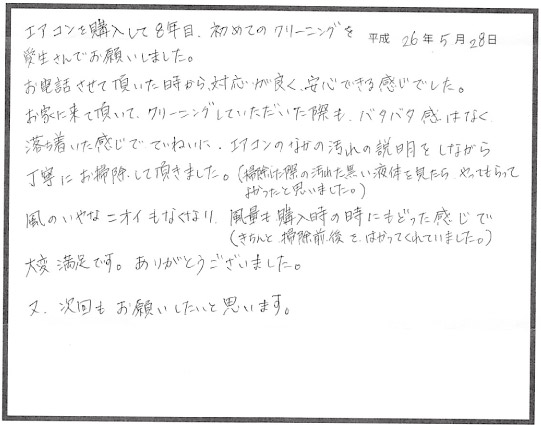 エアコンを購入して8年目、初めてのクリーニングを
平成 26年 5月 28日
愛生さんでお願いしました。
お電話させて頂いた時から、対応が良く、安心できる感じでした。
お家に来て頂いて、クリーニングしていただいた際も、バタバタ感はなく、
落ち着いた感じでていねいに、エアコンのなかの汚れの説明をしながら
丁寧にお掃除して頂きました。(掃除した際の汚れた黒い液体を見たら やってもらって
よかったと思いました。)
風のいやなニオイもなくなり、風量も購入時の時にもどった感じで
(きちんと掃除前、後をはかってくれていました。)
大変満足です。ありがとうございました。
又、次回もお願いしたいと思います。